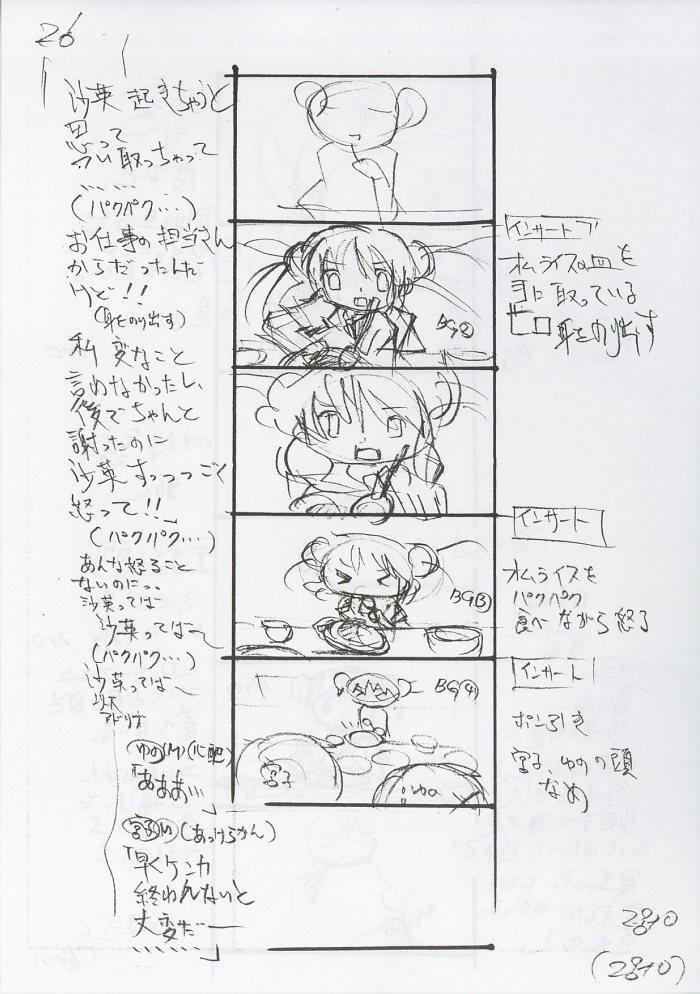 26
沙英 起きちゃうと
思って
つい取っちゃって
……
(パクパク…)
お仕事の担当さん
からだったんだ
けど!!
(身をのり出す)
私 変なこと
言わなかったし、
後でちゃんと
謝ったのに
沙英すっっっごく
怒って!!」
(パクパク…)
あんな怒ること
ないのにっ、
沙英ってば
沙英ってば～
(パクパク…)
沙英ってば～
以下
アドリブ
ゆのM(心配)
「あああ…」
宮子M(あっけらかん)
「早くケンカ
終わんないと
大変だ――
……」
BG②
BG③
BG④
宮子
ゆの
インサート
オムライスの皿を
手に取っている
ヒロ 身をのり出す
インサート
オムライスを
パクパク
食べながら怒る
インサート
ポン引き
宮子、ゆのの頭
なめ
28+0
(28+0)